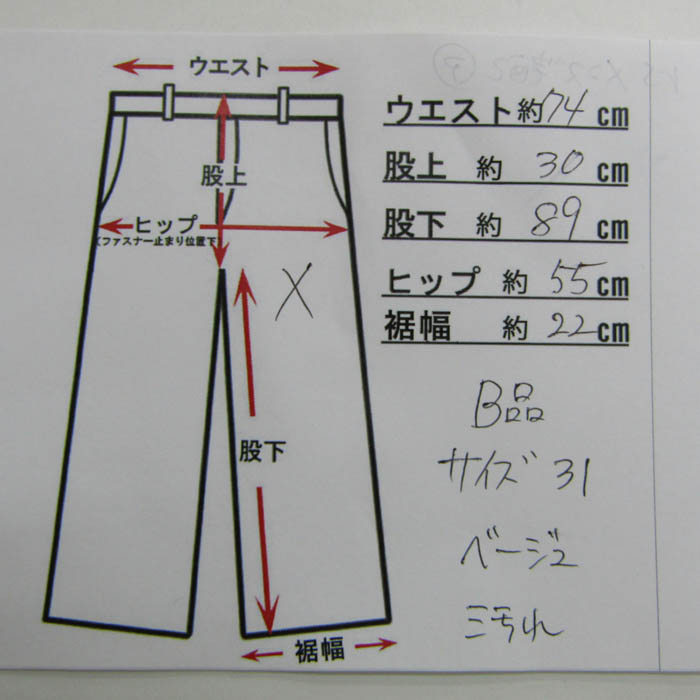 ウエスト
股上
ヒップ
(ファスナー止まり位置下)
股下
裾幅
ウエスト約74cm
股上 約 30cm
股下 約 89cm
ヒップ 約 55cm
裾幅 約 22cm
X
B品
サイズ 31
ベージュ
汚れ